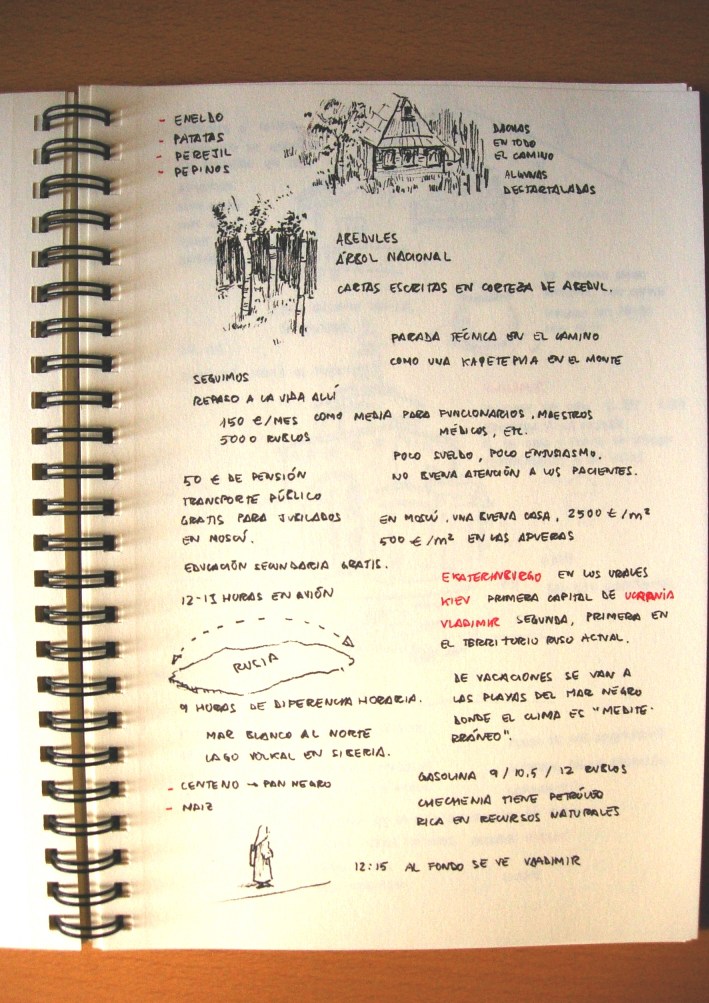 - ENELDO
- PATATAS
- PEREJIL
- PEPINOS
DACHAS
EN TODO
EL CAMINO
ALGUNAS
DESTARTALADAS
ABEDULES
ÁRBOL NACIONAL
CARTAS ESCRITAS EN CORTEZA DE ABEDUL.
PARADA TÉCNICA EN EL CAMINO
COMO UNA КАФЕТЕРИА EN EL MONTE
SEGUIMOS
REPASO A LA VIDA ALLÍ
150 €/MES COMO MEDIA PARA FUNCIONARIOS, MAESTROS
5000 RUBLOS MÉDICOS, ETC.
POCO SUELDO, POCO ENTUSIASMO.
NO BUENA ATENCIÓN A LOS PACIENTES.
50 € DE PENSIÓN
TRANSPORTE PÚBLICO
GRATIS PARA JUBILADOS
EN MOSCÚ.
EN MOSCÚ, UNA BUENA CASA, 2500 €/m²
500 €/m² EN LAS AFUERAS
EDUCACIÓN SECUNDARIA GRATIS.
12-13 HORAS EN AVIÓN
RUSIA
9 HORAS DE DIFERENCIA HORARIA.
EKATERINBURGO EN LOS URALES
KIEV PRIMERA CAPITAL DE UCRANIA
VLADIMIR SEGUNDA, PRIMERA EN
EL TERRITORIO RUSO ACTUAL.
MAR BLANCO AL NORTE
LAGO VOLKAL EN SIBERIA.
DE VACACIONES SE VAN A
LAS PLAYAS DEL MAR NEGRO
DONDE EL CLIMA ES "MEDITE-
RRÁNEO".
- CENTENO → PAN NEGRO
- MAIZ
GASOLINA 9 / 10,5 / 12 RUBLOS
CHECHENIA TIENE PETRÓLEO
RICA EN RECURSOS NATURALES
12:15 AL FONDO SE VE VLADIMIR